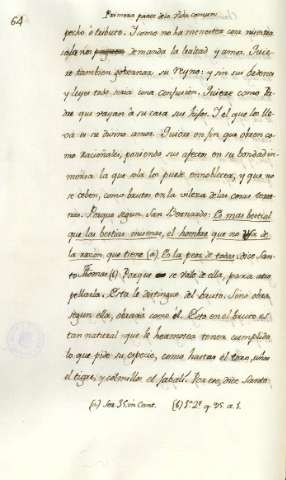 64
Primera parte de la vida comun
pecho ò tributo. I como no ha menester esta nuestra
sola nos demanda la lealtad y amor. Quie-
re tambien governar su Reyno; y sin sus ordenes
y leyes todo seria una confusion. Quierese como Pa-
dre que vayan à su casa sus hijos. I el que los lle-
va es su divino amor. Quiere en fin que obren co-
mo racionales, poniendo sus afectos en su bondad in-
mensa la que sola los puede ennoblecer, y que no
se ceben, como brutos, en la vileza de las cosas terre-
nas. Porque segun San Bernardo: Es mas bestial
que las bestias mismas, el hombre que no usa de
la razon que tiene (a). Es la peor de todas, dice San-
to Thomas (b). Porque se vale de ella, para atro-
pellarla. Esta le distingue del bruto. Sino obra
segun ella, obrarà como èl. Esto en el bruto es
tan natural que le hermosea tener cumplido
lo que pide su especie, como hastas el toro, uñas
el tigre, y colmillos el jabalì. Por eso, dice Santo
(a) Ser. 35. in Cant. (b) 1ª 2ª q. 95. a. 1.